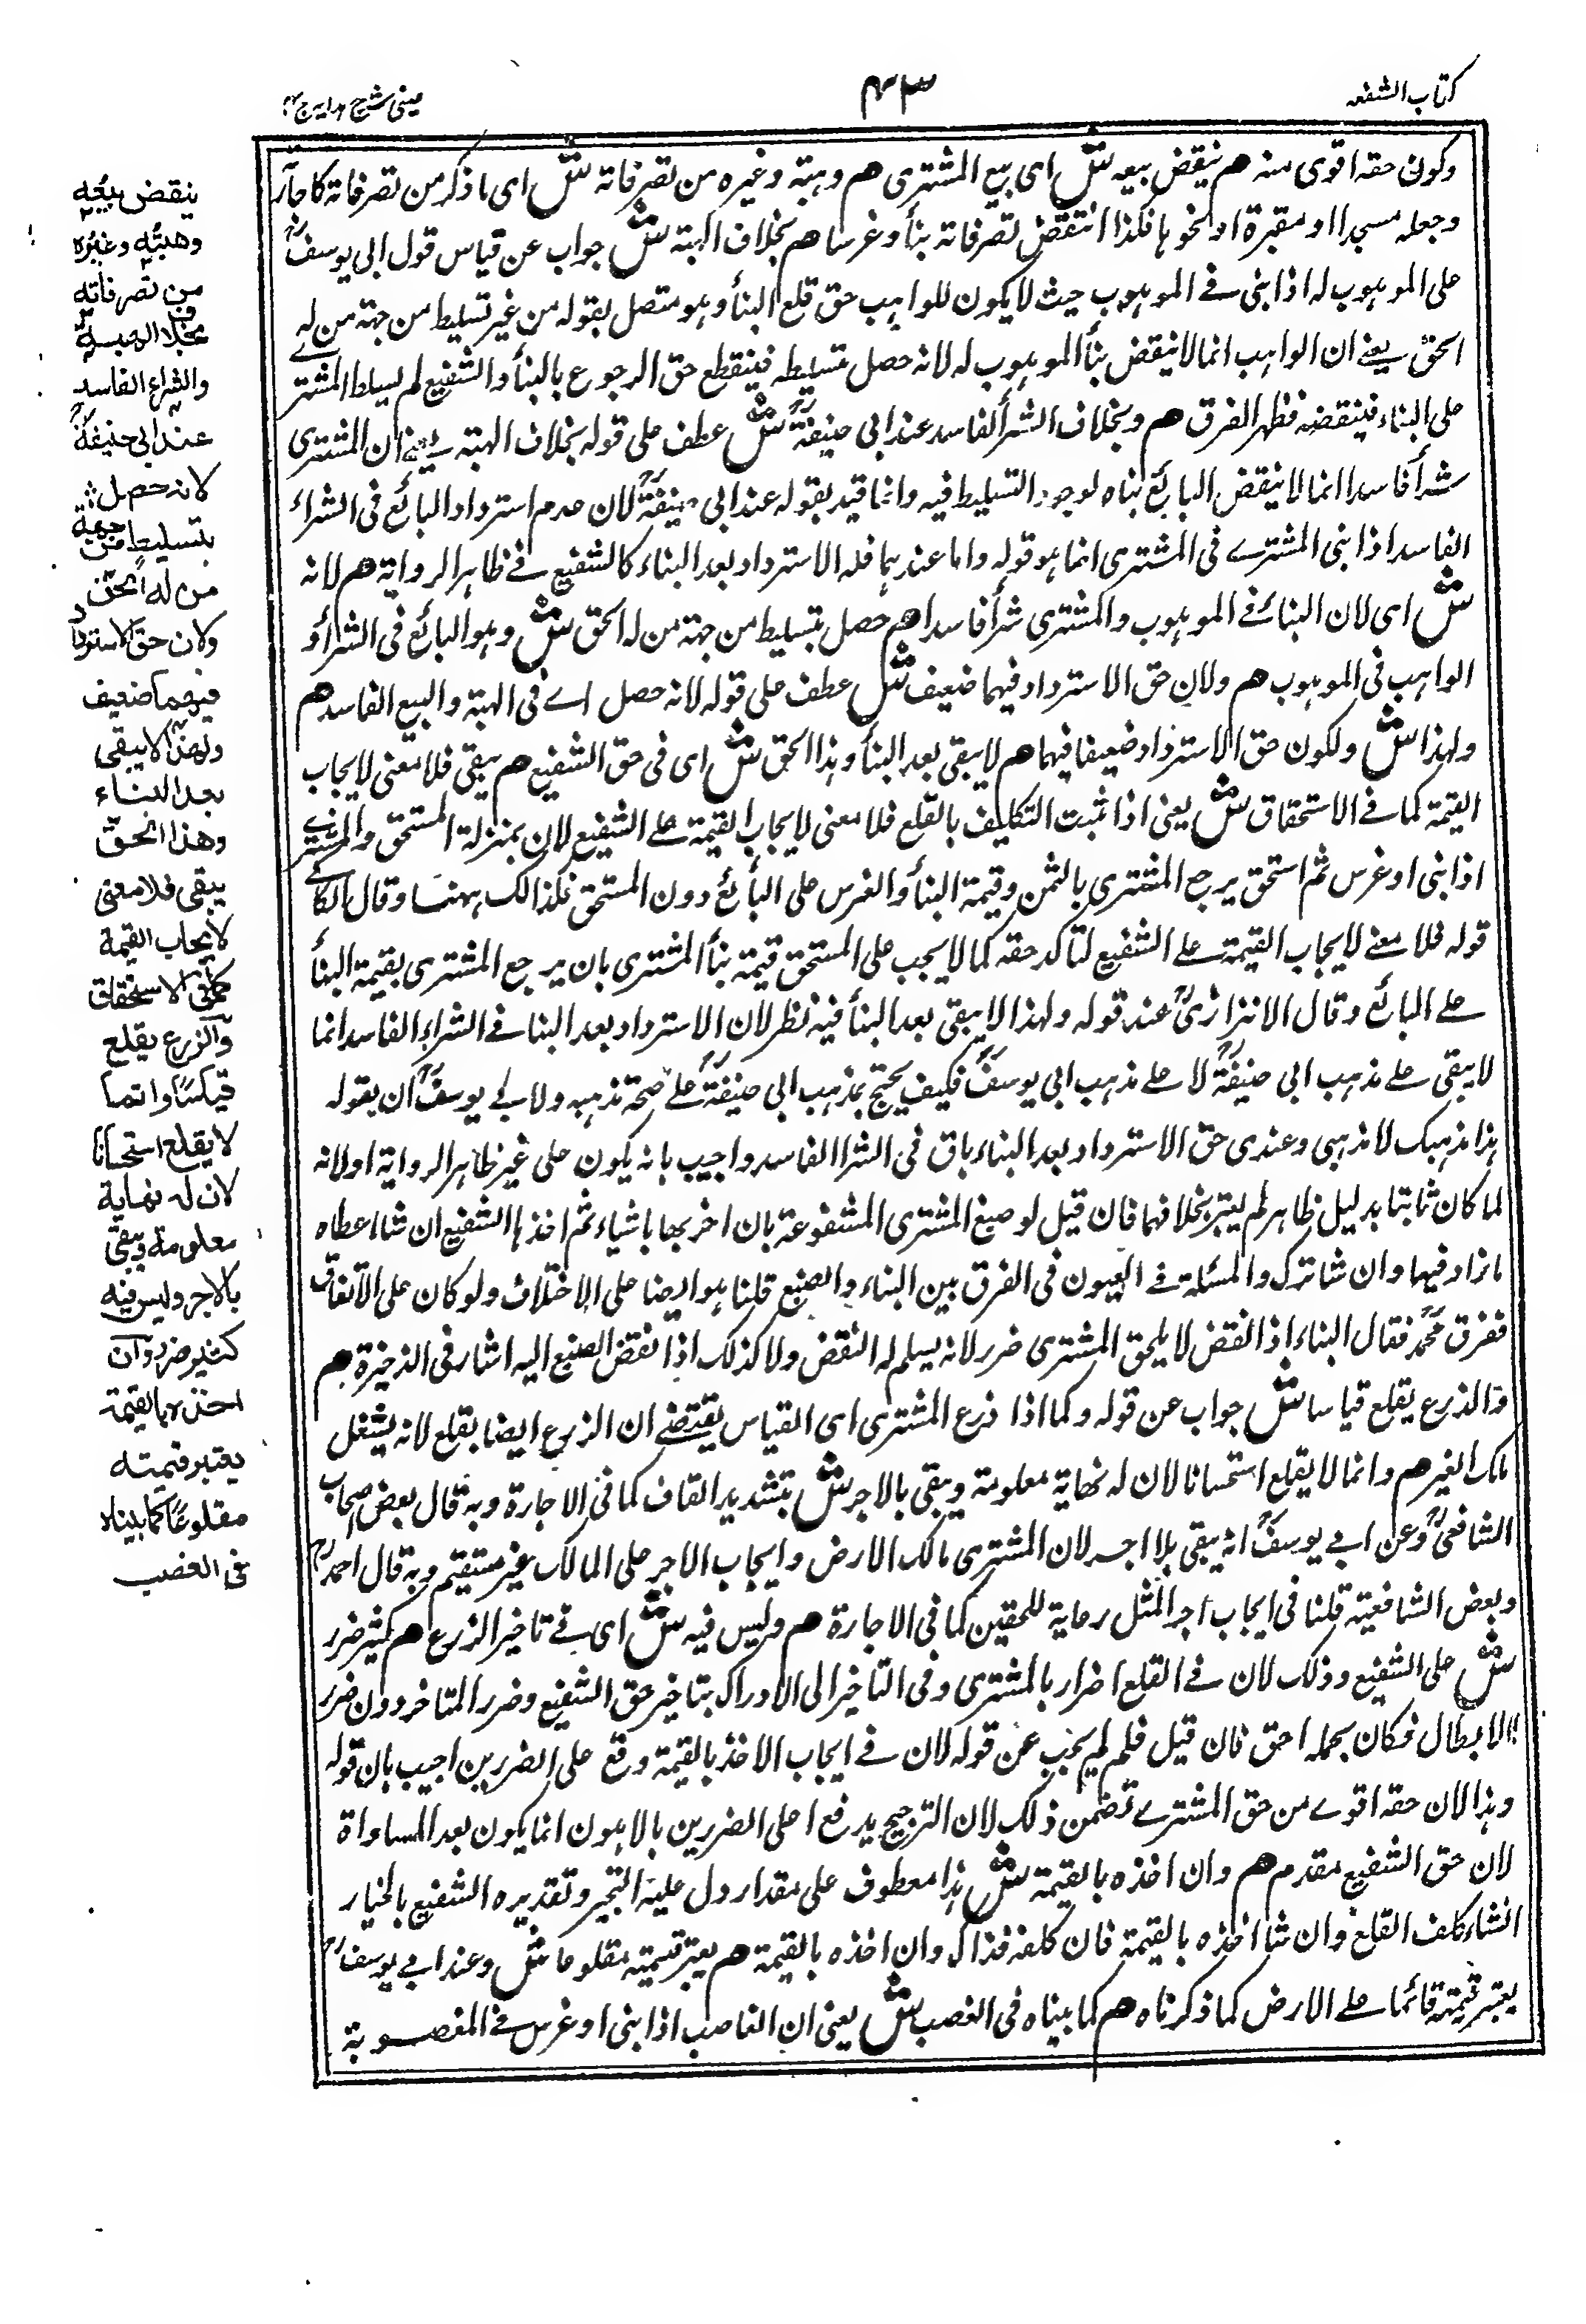 كتاب الشفعه
٤٣
عينى شرح هدايه ج ٤
وكون حقه اقوى منه هم ينقض بيعه ش اى بيع المشترى هم وهبته وغيره من تصرفاته ش اى ما ذكر من تصرفاته كاجارة
وجعله مسجدا او مقبرة او نحوها فكذا انتقض تصرفاته بنأ وغرسا هم بخلاف الهبة ش جواب عن قياس قول ابى يوسف
على الموهوب له اذا بنى فى الموهوب حيث لا يكون للواهب حق قلع البنأ وهو متصل بقوله من غير تسليط من جهة من له
الحق يعنى ان الواهب انما لا ينقض بنأ الموهوب له لانه حصل بتسليطه فينقطع حق الرجوع بالبنأ والشفيع لم يسلط المشترى
على البناء فينقضه فظهر الفرق هم وبخلاف الشرأ الفاسد عند ابى حنيفة ش عطف على قوله بخلاف الهبة يعنى ان المشترى
شرأ فاسدا انما لا ينقض البائع بناه لوجود التسليط فيه وانما قيد بقوله عند ابى حنيفة لان عدم استرداد البائع فى الشراء
الفاسد اذا بنى المشترى فى المشترى انما هو قوله واما عندهما فله الاسترداد بعد البناء كالشفيع فى ظاهر الرواية هم لانه
ش اى لان البناء فى الموهوب والمشترى شرأ فاسدا هم حصل بتسليط من جهة من له الحق ش وهو البائع فى الشرأ و
الواهب فى الموهوب هم ولان حق الاسترداد فيهما ضعيف ش عطف على قوله لانه حصل اى فى الهبة والبيع الفاسد هم
ولهذا ش ولكون حق الاسترداد ضعيفا فيهما هم لا يبقى بعد البنأ وهذا الحق ش اى فى حق الشفيع هم يبقى فلا معنى لايجاب
القيمة كما فى الاستحقاق ش يعنى اذا ثبت التكليف بالقلع فلا معنى لايجاب القيمة على الشفيع لان بمنزلة المستحق والمشترى
اذا بنى او غرس ثم استحق يرجع المشترى بالثمن وقيمة البنأ والغرس على البائع دون المستحق فكذالك ههنا وقال الكاكى
قوله فلا معنى لايجاب القيمة على الشفيع لتاكد حقه كما لا يجب على المستحق قيمة بنأ المشترى بان يرجع المشترى بقيمة البنأ
على البائع وقال الاتزازى عند قوله ولهذا لا يبقى بعد البنأ فيه نظر لان الاسترداد بعد البنا فى الشراء الفاسد انما
لا يبقى على مذهب ابى حنيفة لا على مذهب ابى يوسف فكيف يحتج بمذهب ابى حنيفة على صحة مذهبه ولابى يوسف ان يقوله
هذا مذهبك لا مذهبى وعندى حق الاسترداد بعد البناء باق فى الشرا الفاسد واجيب بانه يكون على غير ظاهر الرواية او لانه
لما كان ثابتا بدليل ظاهر لم يعتبر بخلافهما فان قيل لو صبغ المشترى المشفوعة بان اخر بها باشياء ثم اخذها الشفيع ان شا اعطاه
ما زاد فيها وان شا ترك والمسئلة فى العيون فى الفرق بين البناء والصبغ قلنا هو ايضا على الاختلاف ولو كان على الاتفاق
ففرق محمد فقال البناء اذا نقض لا يلحق المشترى ضرر لانه يسلم له النقض ولا كذلك اذا نقض الصبغ اليه اشار فى الذخيرة هم
والذرع يقلع قياسا ش جواب عن قوله وكما اذا ذرع المشترى اى القياس يقتضى ان الزرع ايضا يقلع لانه يشغل
ملك الغير هم وانما لا يقلع استحسانا لان له نهاية معلومة ويبقى بالاجر ش بتشديد القاف كما فى الاجارة وبه قال بعض اصحاب
الشافعى وعن ابى يوسف انه يبقى بلا اجر لان المشترى مالك الارض وايجاب الاجر على المالك غير مستقيم وبه قال احمد
وبعض الشافعية قلنا فى ايجاب اجر المثل رعاية للحقين كما فى الاجارة هم وليس فيه ش اى فى تاخير الزرع هم كثير ضرر
ش على الشفيع وذلك لان فى القلع اضرار بالمشترى وفى التاخير الى الادراك بتاخير حق الشفيع وضرر التاخر دون ضرر
الابطال فكان بحمله احق فان قيل فلم لم يجب عن قوله لان فى ايجاب الاخذ بالقيمة دفع على الضررين اجيب بان قوله
وهذا لان حقه اقوى من حق المشترى تضمن ذلك لان الترجيح بدفع اعلى الضررين بالاهون انما يكون بعد المساواة
لان حق الشفيع مقدم هم وان اخذه بالقيمة ش هذا معطوف على مقدار دل عليه التخير وتقديره الشفيع بالخيار
انشاء كلف القلع وان شا اخذه بالقيمة فان كلفه فذاك وان اخذه بالقيمة هم يعتبر قيمته مقلوعا ش وعند ابى يوسف
يعتبر قيمة قائما على الارض كما ذكرناه هم كما بيناه فى الغصب ش يعنى ان الغاصب اذا بنى او غرس فى المغصوبة
ينقض بيعُه
وهبتُه وغيرُه
من تصرفاته
بخلاف الهبة
والشراء الفاسد
عند ابى حنيفة
لانه حصل
بتسليطٍ من جهة
من له الحق
ولان حق الاسترداد
فيهما ضعيف
ولهذا لا يبقى
بعد البناء
وهذا الحقّ
يبقى فلا معنى
لايجاب القيمة
كما فى الاستحقاق
والزرع يقلع
قياسًا وانما
لا يقلع استحسانا
لان له نهاية
معلومة ويبقى
بالاجر وليس فيه
كثير ضرر وان
اخذه بالقيمة
يعتبر قيمته
مقلوعًا كما بيناه
فى الغصب